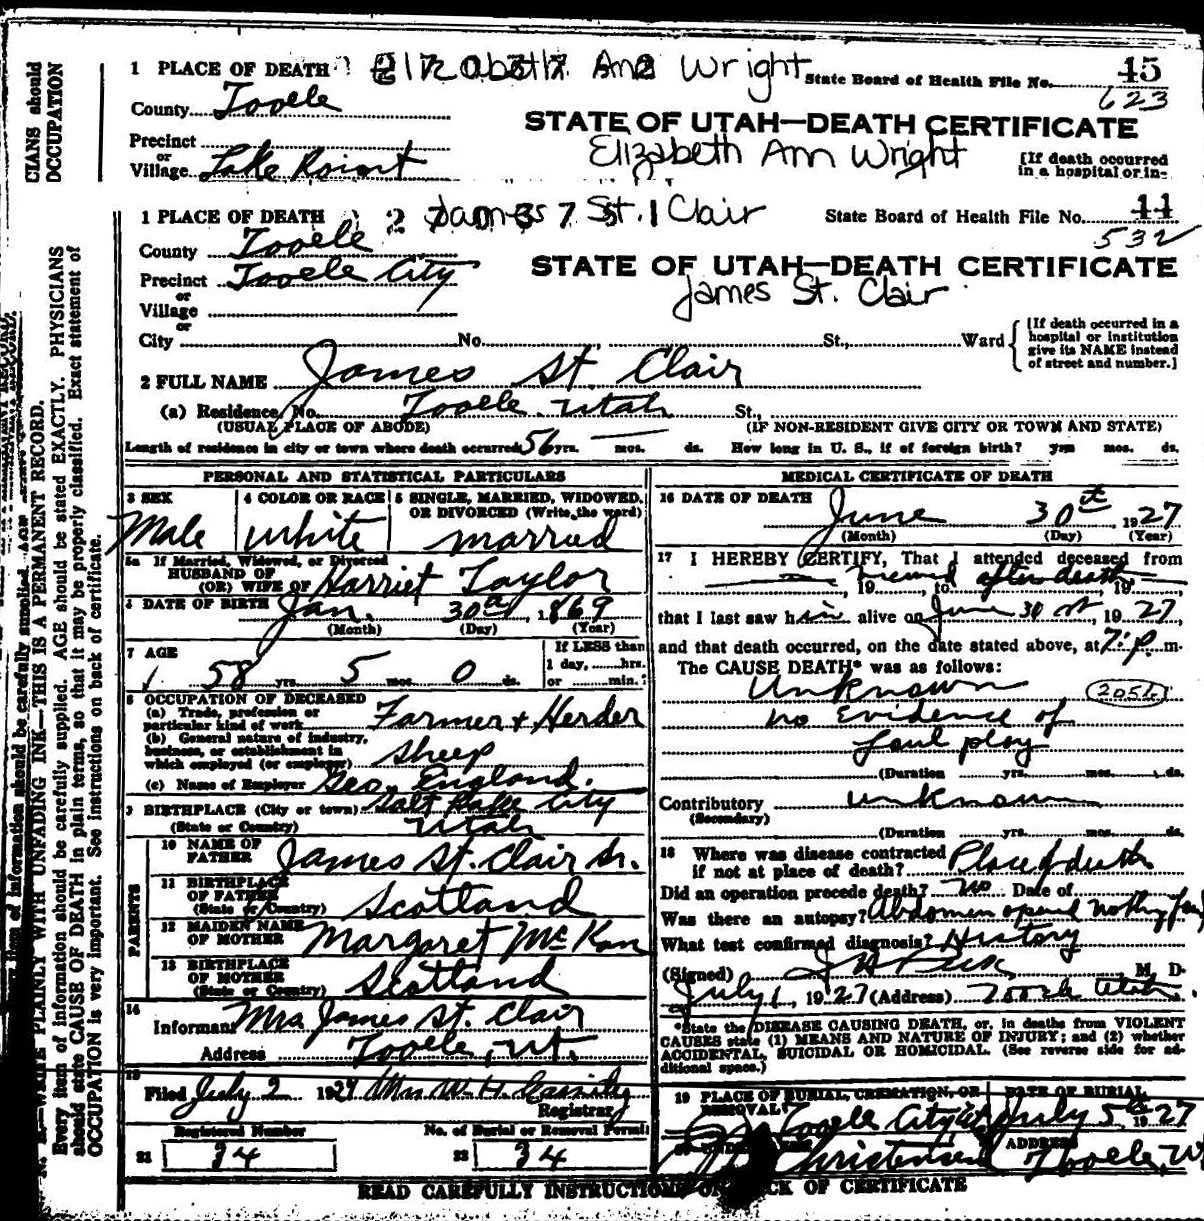 CIANS should
OCCUPATION
1 PLACE OF DEATH Elizabeth Ann Wright State Board of Health File No. 45
623
County Tooele
STATE OF UTAH—DEATH CERTIFICATE
Elizabeth Ann Wright
Precinct
or
Village Lake Point
[If death occurred
in a hospital or in-
1 PLACE OF DEATH James St. Clair State Board of Health File No. 44
532
County Tooele
Precinct Tooele City
STATE OF UTAH—DEATH CERTIFICATE
James St. Clair
or
Village
or
City No. St., Ward
[If death occurred in a
hospital or institution
give its NAME instead
of street and number.]
2 FULL NAME James St. Clair
(a) Residence, No. Tooele, Utah St.,
(USUAL PLACE OF ABODE) (IF NON-RESIDENT GIVE CITY OR TOWN AND STATE)
Length of residence in city or town where death occurred 56 yrs. mos. ds. How long in U. S., if of foreign birth? yrs mos. ds.
PERSONAL AND STATISTICAL PARTICULARS
3 SEX
Male
4 COLOR OR RACE
White
5 SINGLE, MARRIED, WIDOWED,
OR DIVORCED (Write the word)
married
5a If Married, Widowed, or Divorced
HUSBAND OF
(OR) WIFE OF Harriet Taylor
6 DATE OF BIRTH Jan. 30 1869
(Month) (Day) (Year)
7 AGE
58 yrs. 5 mos. 0 ds.
If LESS than
1 day, hrs.
or min.?
8 OCCUPATION OF DECEASED
(a) Trade, profession or
particular kind of work Farmer + Herder
(b) General nature of industry,
business, or establishment in
which employed (or employer) Sheep
(c) Name of Employer Geo. England.
9 BIRTHPLACE (City or town) Salt Lake City
(State or Country) Utah
PARENTS
10 NAME OF
FATHER James St. Clair Sr.
11 BIRTHPLACE
OF FATHER
(State or Country) Scotland
12 MAIDEN NAME
OF MOTHER Margaret
13 BIRTHPLACE
OF MOTHER
(State or Country) Scotland
14
Informant Mrs James St. Clair
Address Tooele, Ut.
15
Filed July 2 1927 Mrs W. H. Cassity
Registrar
Registered Number
21 34
No. of Burial or Removal Permit
22 34
MEDICAL CERTIFICATE OF DEATH
16 DATE OF DEATH
June 30th, 1927
(Month) (Day) (Year)
17 I HEREBY CERTIFY, That I attended deceased from
viewed after death
, 19 , to , 19 ,
that I last saw him alive on June 30th, 1927
and that death occurred, on the date stated above, at 7:P.m.
The CAUSE DEATH* was as follows:
Unknown 205b
no Evidence of
foul play
(Duration yrs. mos. ds.
Contributory unknown
(Secondary)
(Duration yrs. mos. ds.
18 Where was disease contracted
if not at place of death? Place of death
Did an operation precede death? No Date of
Was there an autopsy? Abdomen opened nothing
What test confirmed diagnosis? History
(Signed) J H Peck M D.
July 1, 1927 (Address) Tooele Utah.
*State the DISEASE CAUSING DEATH, or, in deaths from VIOLENT
CAUSES state (1) MEANS AND NATURE OF INJURY; and (2) whether
ACCIDENTAL, SUICIDAL OR HOMICIDAL. (See reverse side for ad-
ditional space.)
19 PLACE OF BURIAL, CREMATION, OR
REMOVAL?
Tooele City
DATE OF BURIAL
July 5th 1927
Christensen
ADDRESS
Tooele, Ut
READ CAREFULLY INSTRUCTIONS ON BACK OF CERTIFICATE
WRITE PLAINLY WITH UNFADING INK—THIS IS A PERMANENT RECORD.
Every item of information should be carefully supplied. AGE should be stated EXACTLY. PHYSICIANS
should state CAUSE OF DEATH in plain terms, so that it may be properly classified. Exact statement of
OCCUPATION is very important. See instructions on back of certificate.